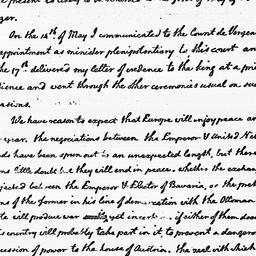 ger.
On the 14th of May I communicated to the Count de Vergen
appointment as minister plenipotentiary to this court and
the 17th delivered my letter of credence to the king at a pri
dience and went through the other ceremonies usual on su
asions.
We have reason to expect that Europe will enjoy peace an
year. the negociations between the Emperor & United Net
ds have been spun out to an unexpected length, but there
ms little doubt but they will end in peace. whether the exchang
jected between the Emperor & Elector of Bavaria, or the pret
ns of the former in his line of demarcation with the Ottoman
te will produce war yet incertain. if either of them does
is country will probably take part in it, to prevent a dangerou
cession of power to the house of Austria. the zeal with which